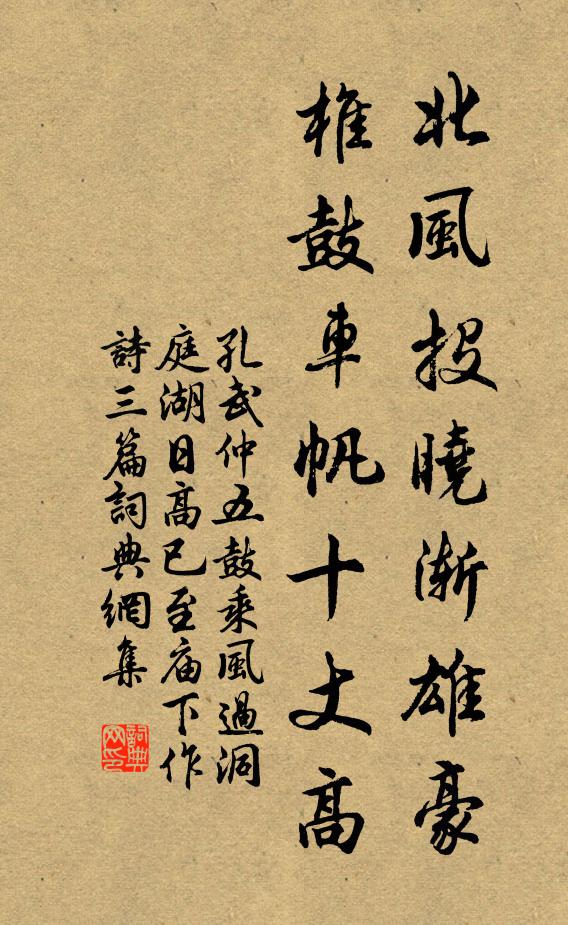 北風投曉漸雄豪
椎鼓車帆十丈高
孔武仲五鼓乘風過洞
庭湖日高已至庙下作
詩三篇詞典網集
詞典网印